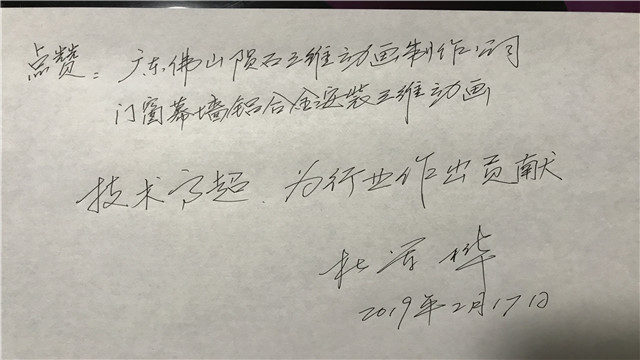 点赞：广东佛山陨石三维动画制作公司
门窗幕墙铝合金安装三维动画
技术高超．为行业作出贡献
杜
2019年2月17日